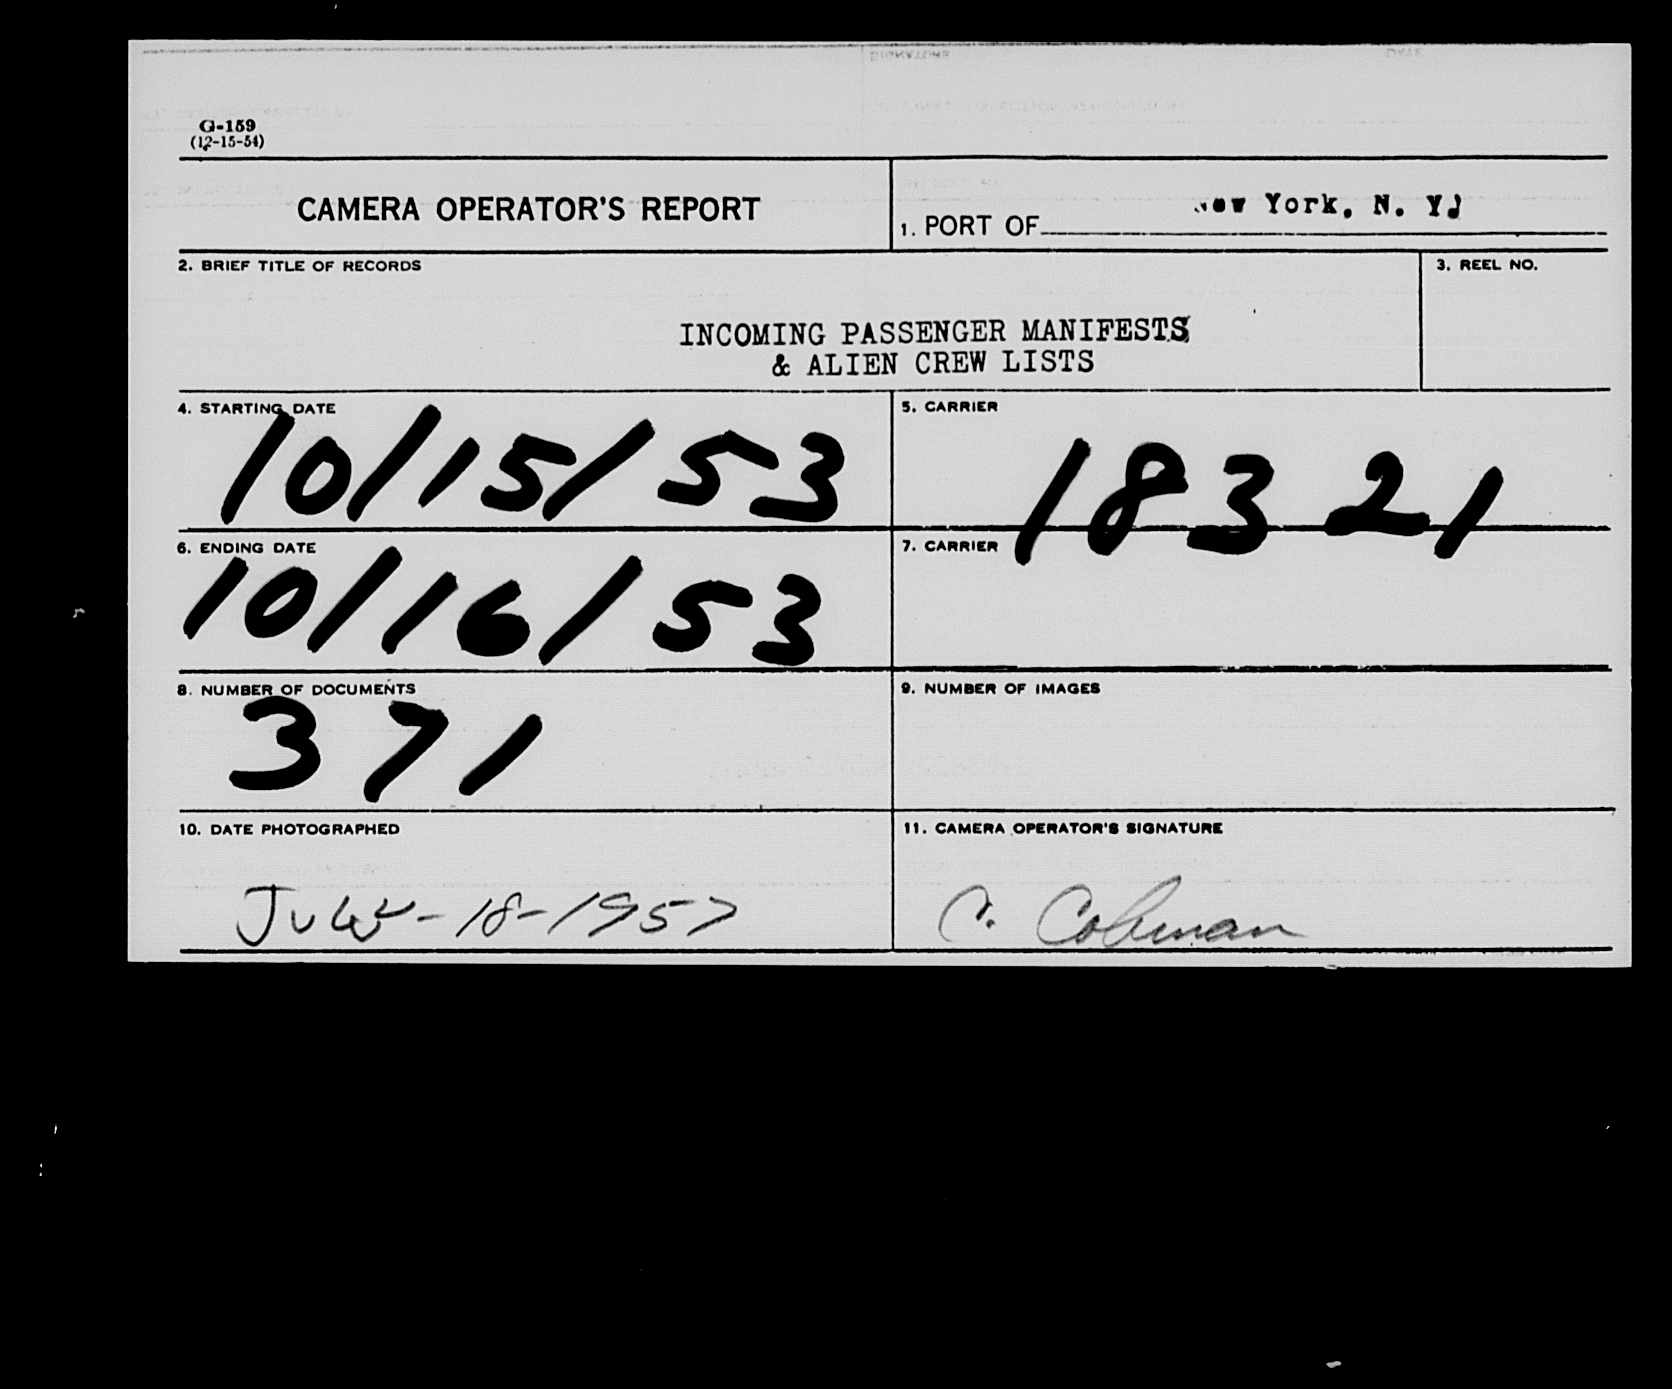 G-159
(12-15-54)
CAMERA OPERATOR'S REPORT
1. PORT OF New York, N. Y.
2. BRIEF TITLE OF RECORDS
3. REEL NO.
INCOMING PASSENGER MANIFESTS
& ALIEN CREW LISTS
4. STARTING DATE
10/15/53
5. CARRIER
18321
6. ENDING DATE
10/16/53
7. CARRIER
8. NUMBER OF DOCUMENTS
371
9. NUMBER OF IMAGES
10. DATE PHOTOGRAPHED
July-18-1957
11. CAMERA OPERATOR'S SIGNATURE
C.